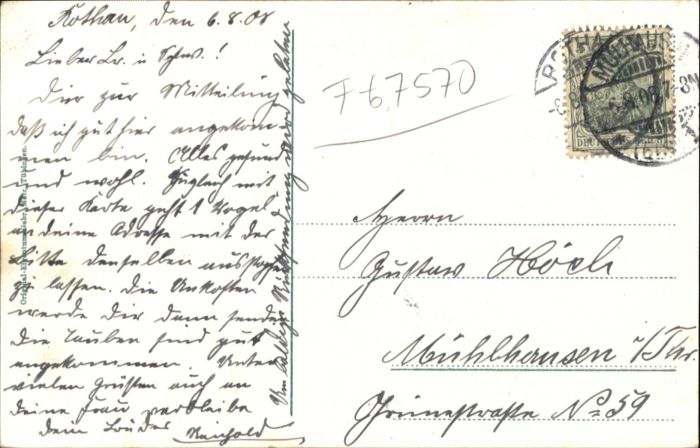 Rothau, den 6.8.08
Lieber Br. u Schw.!
Dir zur Mitteilung
daß ich gut hier angekom-
men bin. Alles gesund
und wohl. Zugleich mit
dieser Karte geht 1 Vogel
an deine Adresse mit der
Bitte denselben ausstopfen
zu lassen. Die Unkosten
werde Dir dann senden
Die Tauben sind gut
angekommen. Unter
vielen Grüßen auch an
deine Frau verbleibe
dein Bruder Reinhold
Um baldige Rücksendung wird gebeten
F 67570
Herrn
Gustav Höch
Mühlhausen i/Thr.
Grünestraße No 59